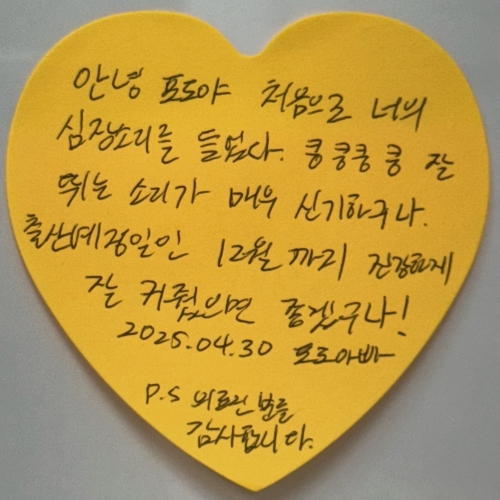 안녕 포도야 처음으로 너의
심장소리를 들었다. 쿵쿵쿵쿵 잘
뛰는 소리가 매우 신기하구나.
출산예정일인 12월까지 건강하게
잘 커줬으면 좋겠구나!
2025.04.30 포도아빠
P.S 의료진분들
감사합니다.